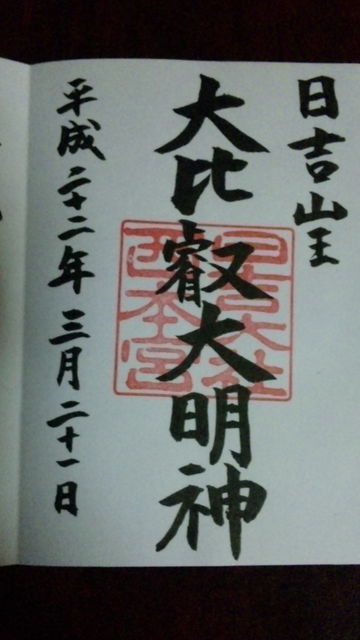 日吉山王
大比叡大明神
日吉大社
西本宮
平成二十二年三月二十一日